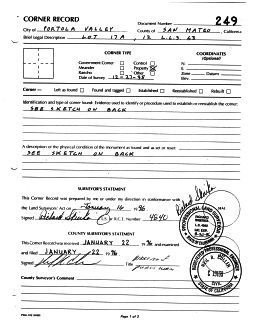 CORNER RECORD
Document Number 249
City of PORTOLA VALLEY County of SAN MATEO , California
Brief Legal Description LOT 17A 12 L.L.S 63
CORNER TYPE
COORDINATES
(Optional)
Government Corner Control
Meander Property
Rancho Other
Date of Survey 12-27-95
N.
E.
Zone Datum
Elev.
Corner — Left as found Found and tagged Established Reestablished Rebuilt
Identification and type of corner found: Evidence used to identify or procedure used to establish or reestablish the corner:
SEE SKETCH ON BACK
A description of the physical condition of the monument as found and as set or reset:
SEE SKETCH ON BACK
SURVEYOR'S STATEMENT
This Corner Record was prepared by me or under my direction in conformance with
the Land Surveyors' Act on January 16 1996
Signed L.S. or R.C.E. Number
COUNTY SURVEYOR'S STATEMENT
This Corner Record was received JANUARY 22 1996 and examined
and filed JANUARY 22 1996
Title
County Surveyor's Comment
Page 1 of 2